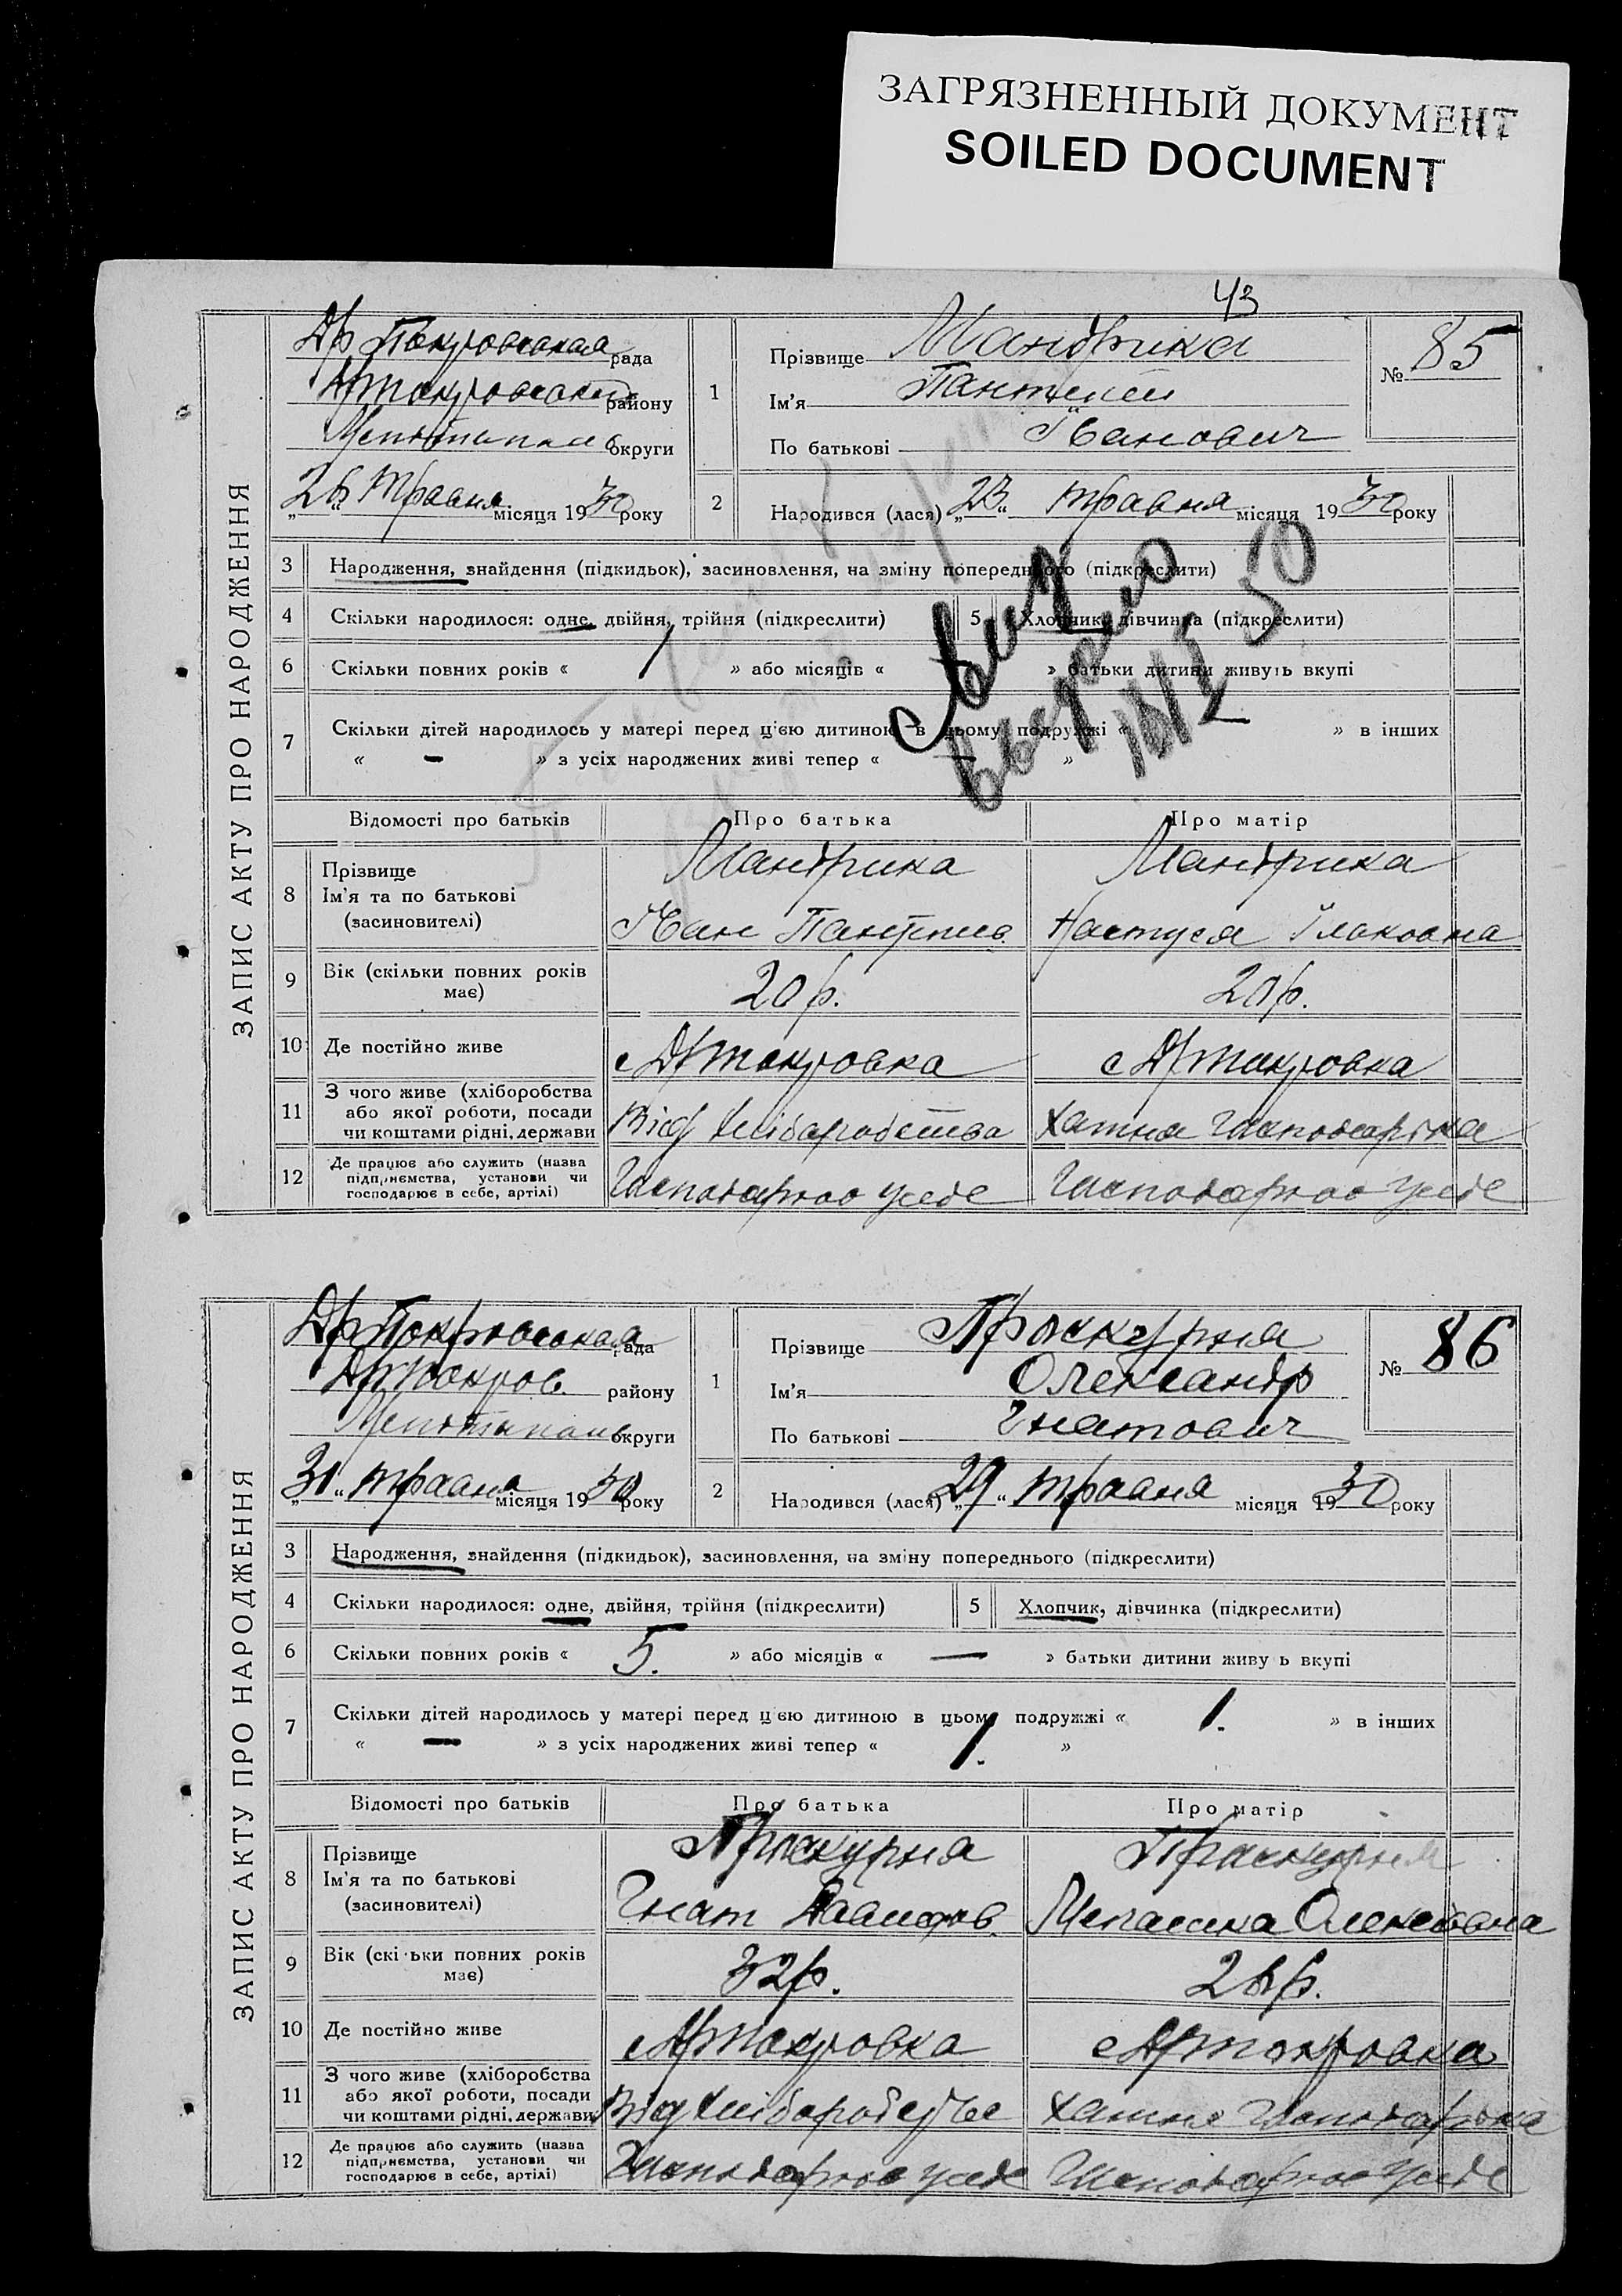 ЗАГРЯЗНЕННЫЙ ДОКУМЕНТ
SOILED DOCUMENT
43
ЗАПИС АКТУ ПРО НАРОДЖЕННЯ
Др Покровская рада
району
округи
„26“ Травня місяця 1930 року
1
Прізвище Мандрика
Ім'я Пантелей
По батькові Іванович
№ 85
2
Народився (лася) „23“ травня місяця 1930 року
3 Народження, знайдення (підкидьок), засиновлення, на зміну попереднього (підкреслити)
4 Скільки народилося: одне, двійня, трійня (підкреслити) 5 Хлопчик, дівчинка (підкреслити)
6 Скільки повних років « 1 » або місяців « » батьки дитини живуть вкупі
7 Скільки дітей народилось у матері перед цією дитиною в цьому подружжі « — » в інших
« — » з усіх народжених живі тепер « — »
Відомості про батьків Про батька Про матір
8 Прізвище
Ім'я та по батькові
(засиновителі)
Мандрика Мандрика
Іван Настуся
9 Вік (скільки повних років має) 20 р. 20 р.
10 Де постійно живе с Др Покровка с Др Покровка
11 З чого живе (хліборобства
або якої роботи, посади
чи коштами рідні, держави
Від хліборобства Хатня господарка
12 Де працює або служить (назва
підприємства, установи чи
господарює в себе, артілі)
Господарює у себе Господарює у себе
ЗАПИС АКТУ ПРО НАРОДЖЕННЯ
Др Покровская рада
Др Покров. району
округи
„31“ травня місяця 1930 року
1
Прізвище Проскурня
Ім'я Олександр
По батькові Гнатович
№ 86
2
Народився (лася) „29“ травня місяця 1930 року
3 Народження, знайдення (підкидьок), засиновлення, на зміну попереднього (підкреслити)
4 Скільки народилося: одне, двійня, трійня (підкреслити) 5 Хлопчик, дівчинка (підкреслити)
6 Скільки повних років « 5. » або місяців « — » батьки дитини живу ь вкупі
7 Скільки дітей народилось у матері перед цією дитиною в цьому подружжі « 1. » в інших
« — » з усіх народжених живі тепер « 1. »
Відомості про батьків Про батька Про матір
8 Прізвище
Ім'я та по батькові
(засиновителі)
Проскурня Проскурня
Гнат Давидов. Олексіовна
9 Вік (скільки повних років має) 32 р. 26 р.
10 Де постійно живе с Др Покровка с Др Покровка
11 З чого живе (хліборобства
або якої роботи, посади
чи коштами рідні, держави
Від хліборобства Хатня господарка
12 Де працює або служить (назва
підприємства, установи чи
господарює в себе, артілі)
Господарює у себе Господарює у себе